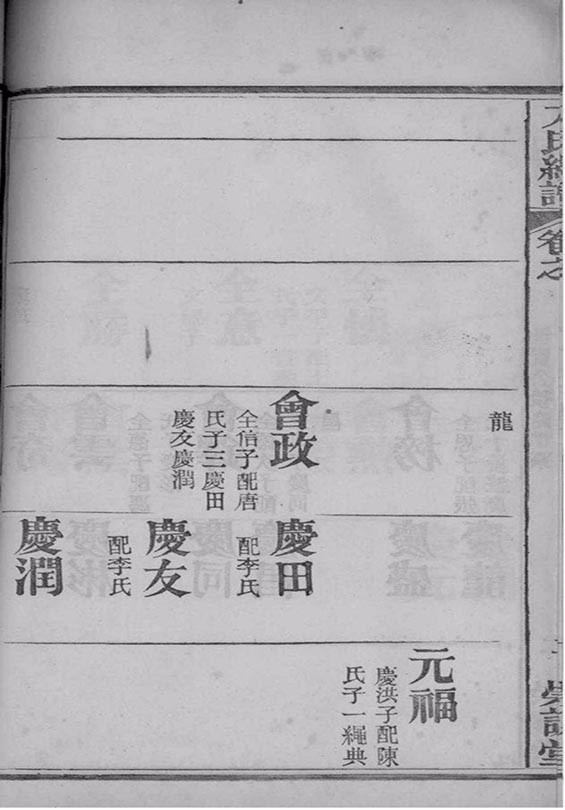 卷之
龍
會政
全信子配唐
氏子三慶田
慶友慶潤
慶田
配李氏
慶友
配李氏
慶潤
元福
慶洪子配陳
氏子一繩典